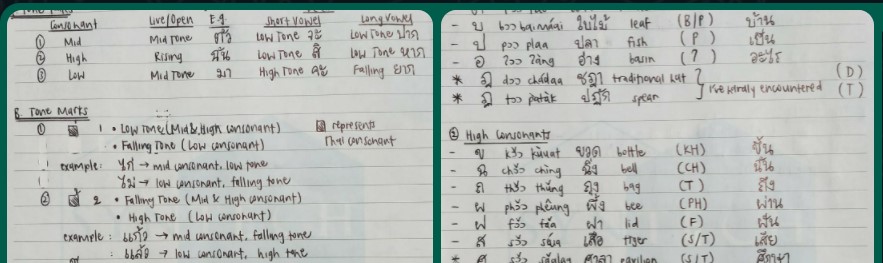 Consonant Live/Open E.g. Short Vowel Long Vowel
① Mid Mid Tone ตัว Low Tone จะ Low Tone ปาก
② High Rising ฉัน Low Tone สิ Low Tone หาก
③ Low Mid Tone มา High Tone ละ Falling ยาก
B. Tone Marks
① 1 • Low Tone (Mid & High consonant) represents
• Falling Tone (Low consonant) Thai consonant
example: ไก่ → mid consonant, low tone
ไม่ → low consonant, falling tone
② 2 • Falling Tone (Mid & High consonant)
• High Tone (Low consonant)
example: แก้ว → mid consonant, falling tone
: แล้ว → low consonant, high tone
- บ bɔɔ baimáai ใบไม้ leaf (B/P) บ้าน
- ป pɔɔ plaa ปลา fish (P) เป็น
- อ ʔɔɔ ʔàang อ่าง basin (?) อะไร
* ฎ dɔɔ chádaa ชฎา traditional hat (D)
* ฏ tɔɔ patàk ปฏัก spear I've hardly encountered (T)
② High Consonants
- ข khɔ̌ɔ khùuat ขวด bottle (KH) ขึ้น
- ฉ chɔ̌ɔ chìng ฉิ่ง bell (CH) ฉัน
- ถ thɔ̌ɔ thǔng ถุง bag (T) ถึง
- ผ phɔ̌ɔ phêung ผึ้ง bee (PH) ผ่าน
- ฝ fɔ̌ɔ fǎa ฝา lid (F) ฝัน
- ส sɔ̌ɔ sʉ̌a เสือ tiger (S/T) เสีย
* ศ sɔ̌ɔ sǎalaa ศาลา pavilion (S/T) ศึกษา